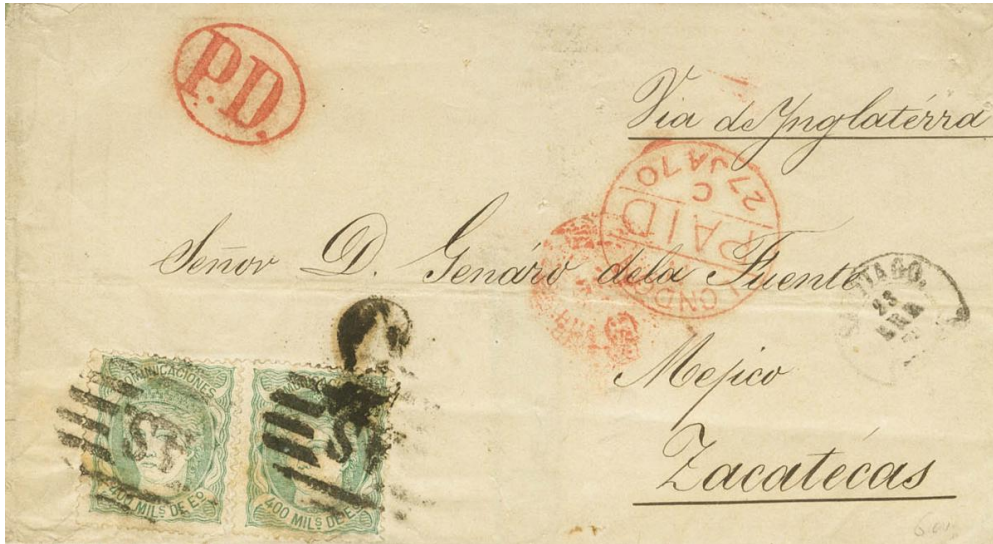 P.D.
Via de Ynglatérra
LONDON
PAID
C
27 JA 70
Señor D. Genáro dela Fuente
TIAGO.
23
ENE
Mejico
Zacatécas
COMUNICACIONES
400 MILS DE EO
400 MILS DE EO